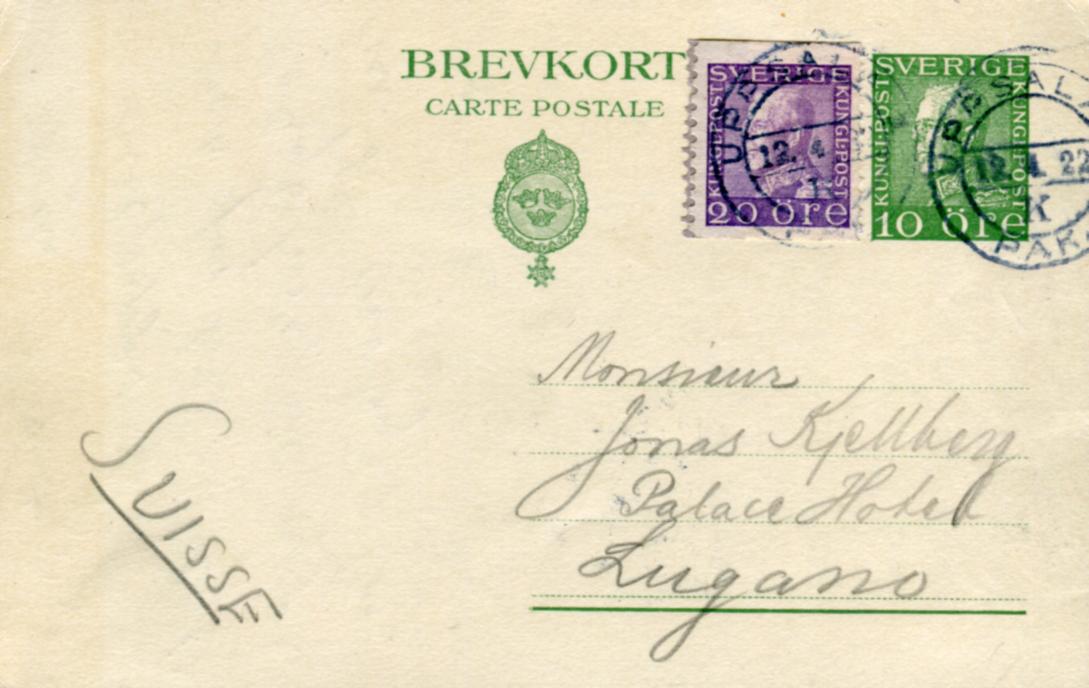 BREVKORT
CARTE POSTALE
SVERIGE
KUNGL·POST
KUNGL·POST
20 öre
SVERIGE
KUNGL·POST
KUNGL·POST
10 öre
UPPSALA
12. 4
UPPSAL
12. 4. 22
K
PAK
Monsieur
Jonas Kjellberg
Palace Hotel
Lugano
SUISSE